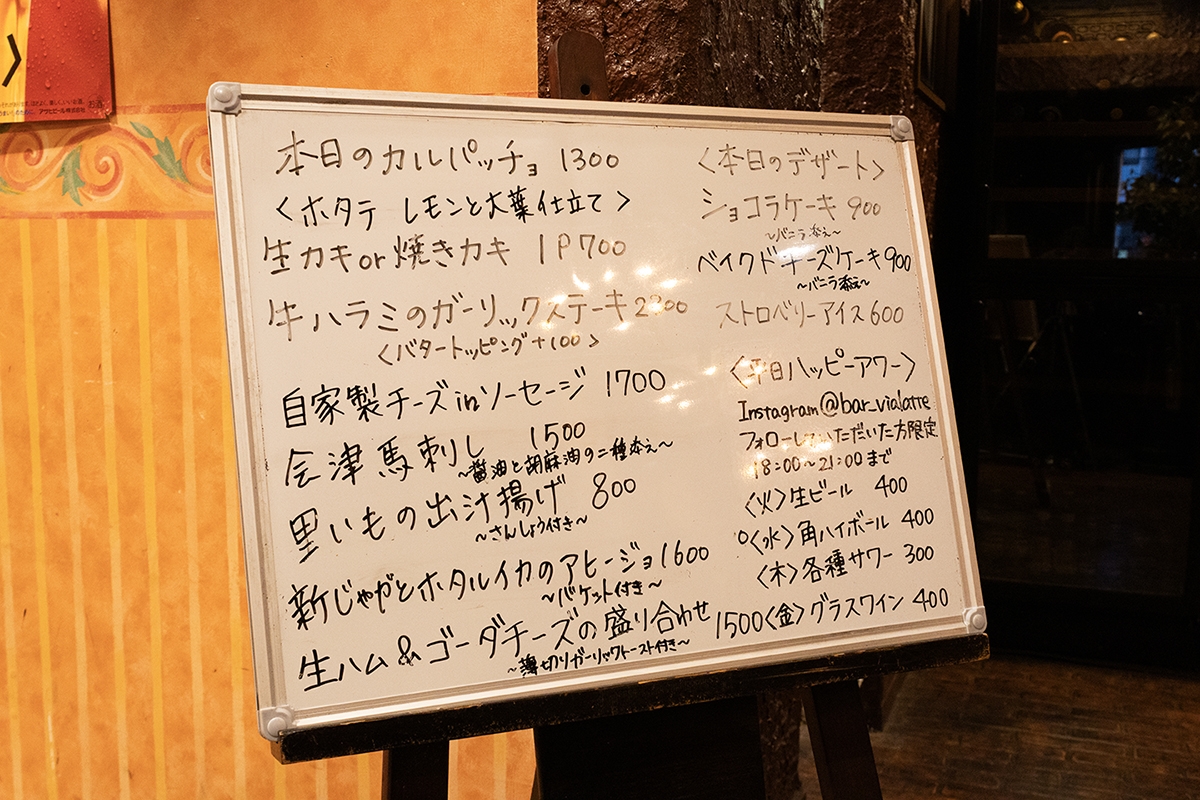 アサヒビール株式会社
お酒
本日のカルパッチョ 1300
<ホタテ レモンと大葉仕立て>
生カキor焼きカキ 1P700
牛ハラミのガーリックステーキ2200
<バタートッピング+100>
自家製チーズinソーセージ 1700
会津馬刺し 1500
~醤油と胡麻油の二種添え~
里いもの出汁揚げ 800
~さんしょう付き~
新じゃがとホタルイカのアヒージョ1600
~バケット付き~
生ハム&ゴーダチーズの盛り合わせ 1500
~薄切りガーリックトースト付き~
<本日のデザート>
ショコラケーキ 900
~バニラ添え~
ベイクドチーズケーキ900
~バニラ添え~
ストロベリーアイス600
<平日ハッピーアワー>
Instagram@bar_vialatte
フォローしていただいた方限定
18:00~21:00まで
<火>生ビール 400
<水>角ハイボール 400
<木>各種サワー 300
<金>グラスワイン 400